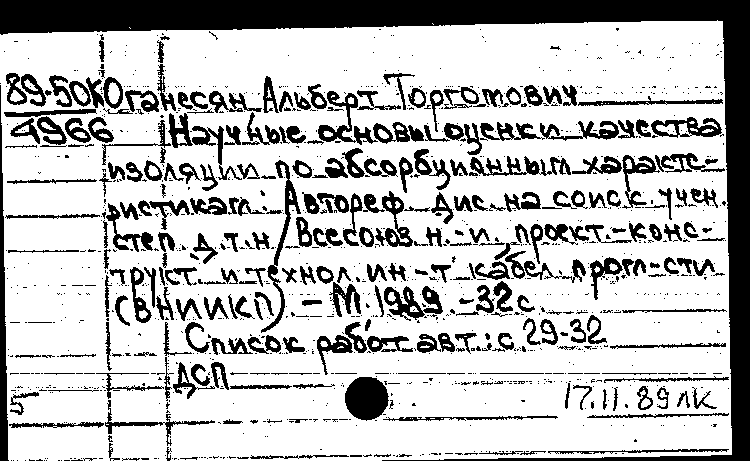 89-50К Оганесян, Альберт Торгомович
4966 Научные основы оценки качества
изоляции по абсорбционным характе-
ристикам: Автореф. дис. на соиск. учен.
степ. д.т.н. / Всесоюз. н.-и., проект.-конс-
трукт. и технол. ин-т кабел. пром-сти
(ВНИИКП). - М. 1989. - 32 с.
Список работ авт.: с. 29-32
ДСП
5 17.11.89 лк